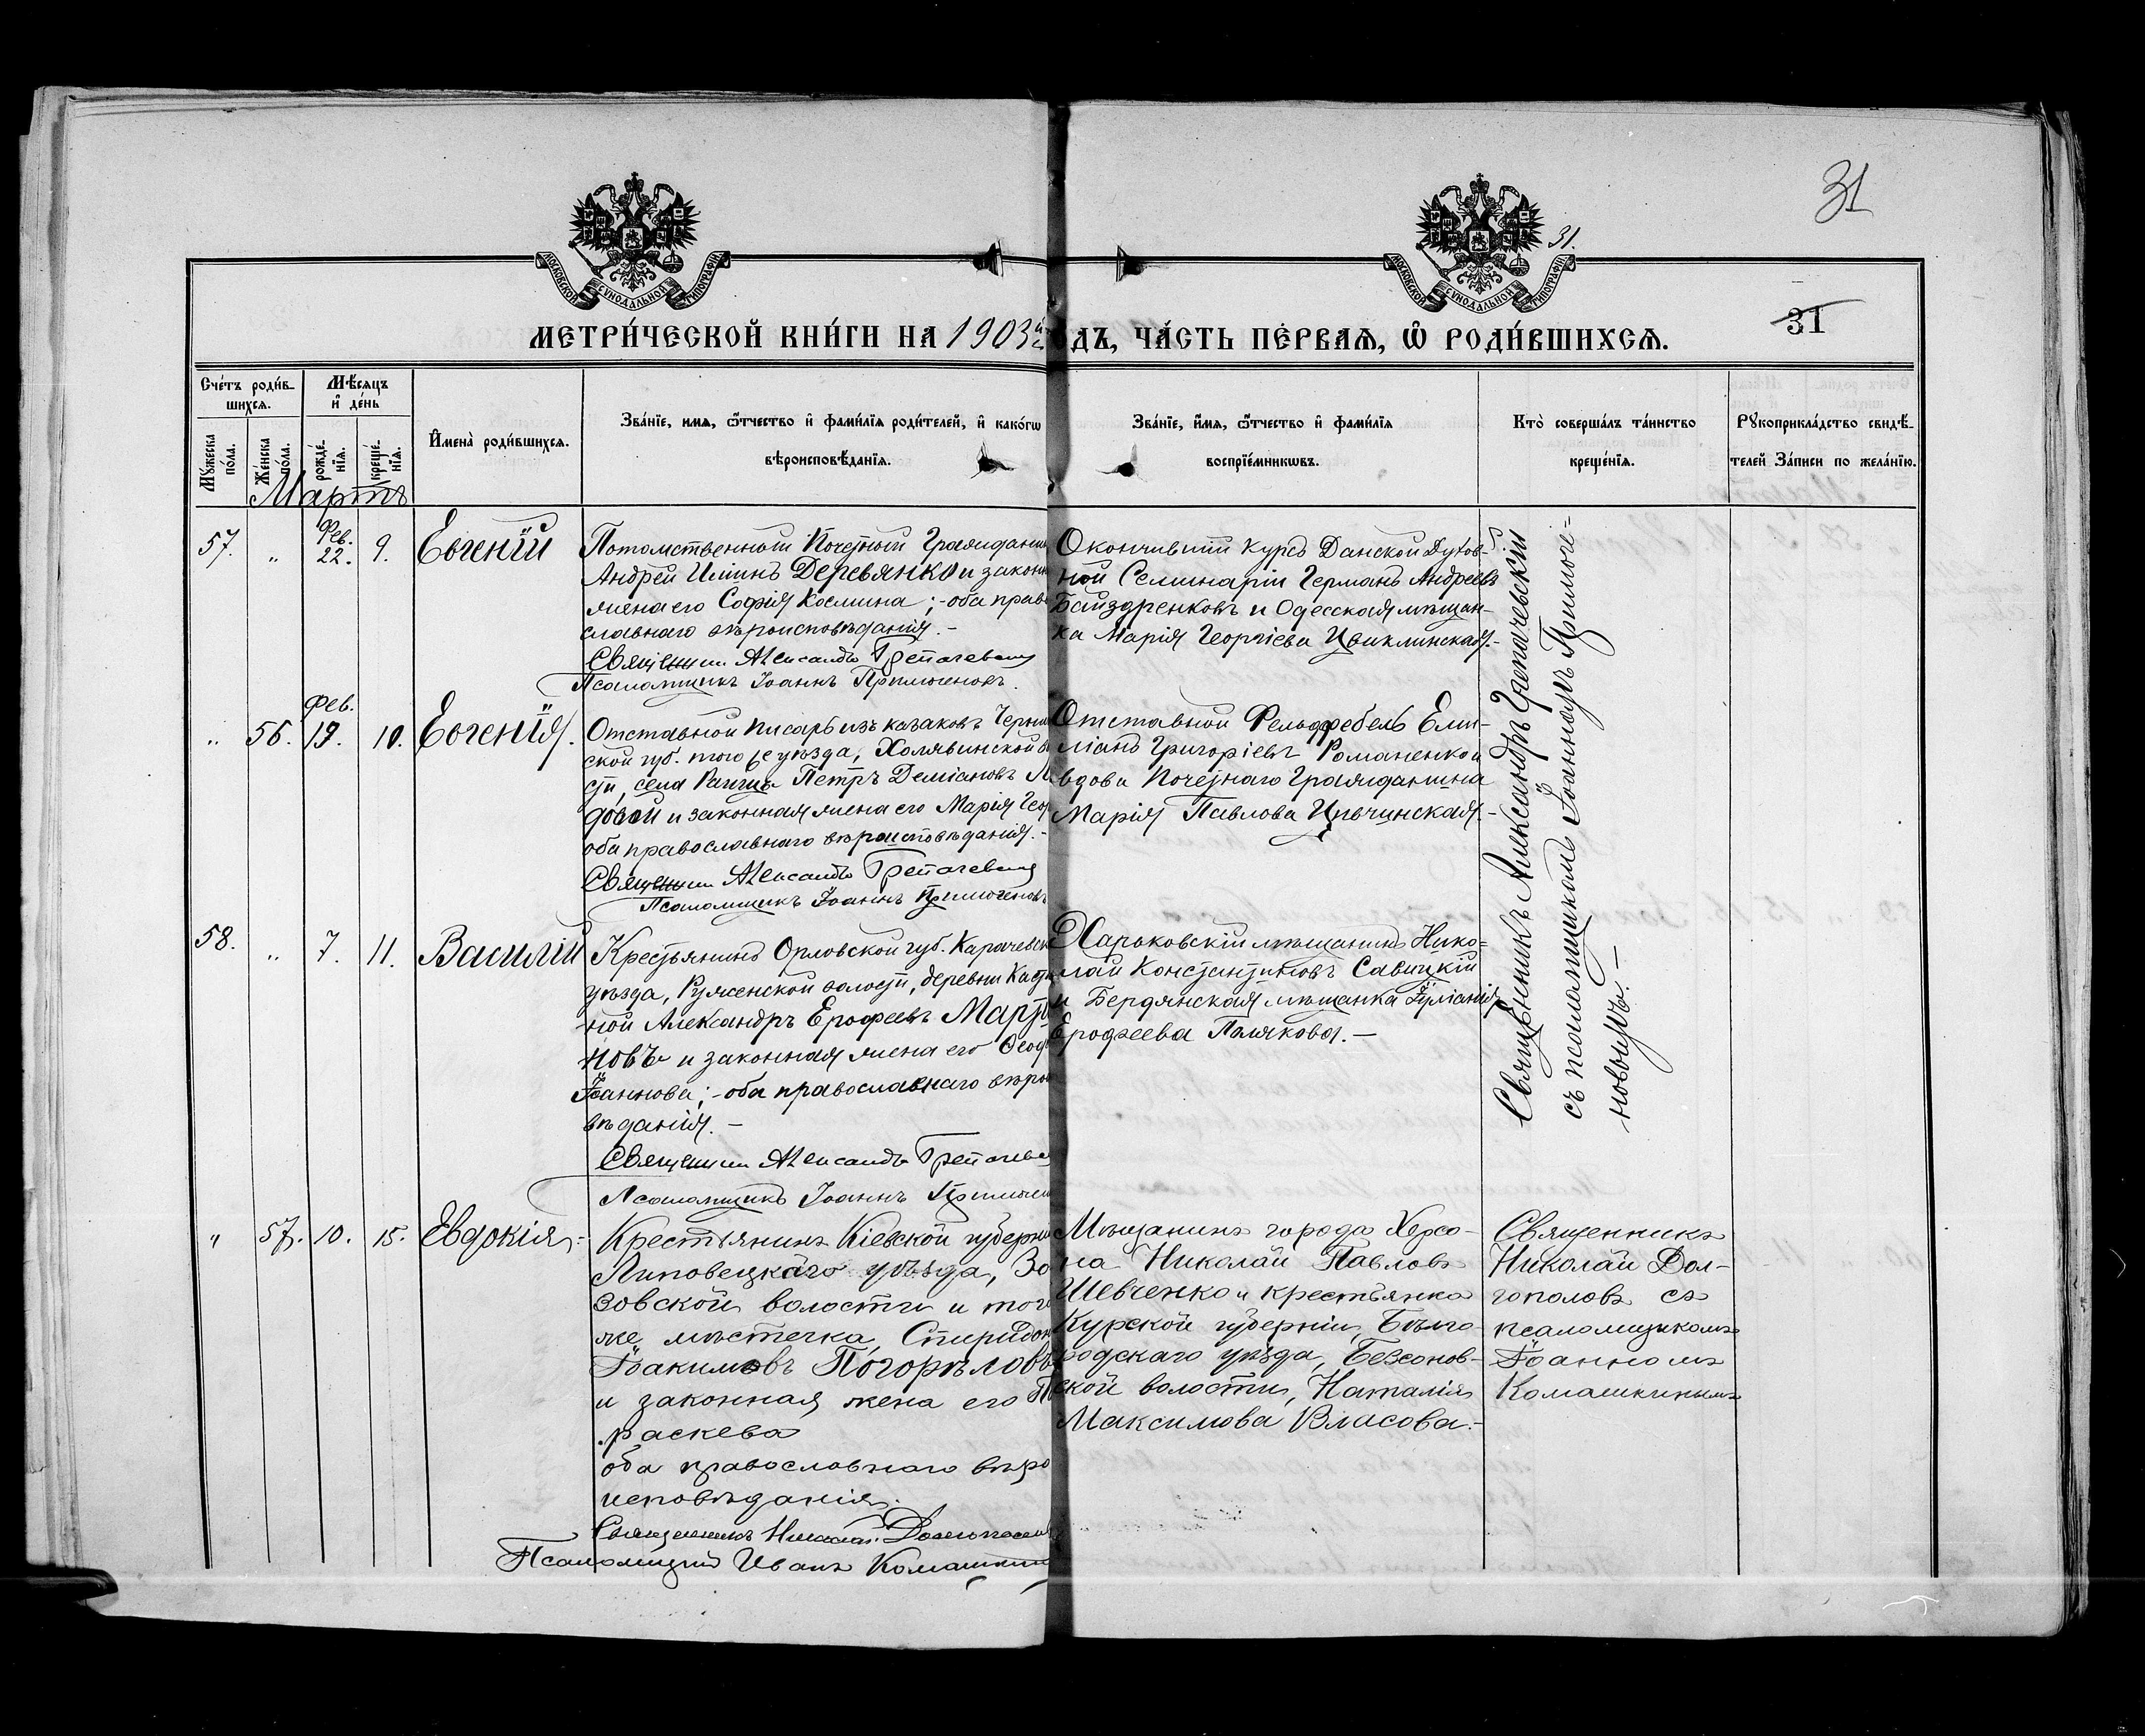 31
31.
МОСКОВСКОЙ СѴНОДАЛЬНОЙ ТИПОГРАФІИ
МОСКОВСКОЙ СѴНОДАЛЬНОЙ ТИПОГРАФІИ
МЕТРИ́ЧЕСКОЙ КНИ́ГИ НА 1903й ОДЪ, ЧА́СТЬ ПЕ́РВАѦ, Ѡ҆ РОДИ́ВШИХСѦ.
31
Сче́тъ роди́в-
шихсѧ.
Мѣ́сѧцъ
и҆ де́нь
Мꙋ́жеска по́ла.
Же́нска по́ла.
рожде́-нїѧ.
креще́-нїѧ.
И҆мена̀ роди́вшихсѧ.
Зва́нїе, имѧ, ѻ҆́тчество и҆ фами́лїѧ роди́телей, и҆ како́гѡ
вѣроисповѣ́данїѧ.
Зва́нїе, и҆́мѧ, ѻ҆́тчество и҆ фами́лїѧ
воспрїе́мникѡвъ.
Кто̀ соверша́лъ та́инство
креще́нїѧ.
Рꙋкоприкла́дство свидѣ́-
телей За́писи по жела́нїю.
Мартъ
57. „ Фев. 22. 9. Евгеній
Потомственный Почетный Граждани
Андрей Ильинъ Деревянко и законн
жена его Софія Космина; - оба право
славнаго вѣроисповѣданія. -
Священникъ Александръ Грепачевскій
Псаломщикъ Іоаннъ Примоченовъ.
Окончившій курсъ Донской Духов-
ной Семинаріи Германъ Андреевъ
Байздренковъ и Одесская мѣщан-
ка Марія Георгіева Цвиклинская. -
Фев.
„ 56. 19. 10. Евгенія.
Отставной писарь изъ казаковъ Черни
ской губ. того же уѣзда, Холявинской во
сти, села Петръ Деміановъ
и законная жена его Марія Геор
оба православнаго вѣроисповѣданія. -
Священникъ Александръ Грепачевскій
Псаломщикъ Іоаннъ Примоченовъ
Отставной Фельдфебель Еми-
ліанъ Григоріевъ Романенко и
вдова Почетнаго Гражданина
Марія Павлова Цѣвчинская. -
58. „ 7. 11. Василій
Крестьянинъ Орловской губ. Карачевск
уѣзда, Руженской волости, деревни
ной Александръ Ерофеевъ Марты
новъ и законная жена его Ѳеод
Іоаннова; - оба православнаго вѣрои
вѣданія. -
Священникъ Александръ Грепачевс
Псаломщикъ Іоаннъ Примочен
Харьковскій мѣщанинъ Нико=
лай Константиновъ Савицкій
и Бердянская мѣщанка Іуліанія
Ерофеева Полякова. -
Священникъ Александръ Грепачевскій
съ псаломщикомъ Іоанномъ Примоче=
новымъ. -
„ 57. 10. 15. Евдокія. -
Крестьянинъ Кіевской губерні
Липовецкаго уѣзда, Зо
зовской волости и того
же мѣстечка, Спиридон
Іоакимовъ Погорѣловъ
и законная жена его П
раскева
оба православнаго вѣро
исповѣданія.
Священникъ Николай Долгополов
Псаломщикъ Иванъ Комашкин
Мѣщанинъ города Херсо-
на Николай Павловъ
Шевченко и крестьянка
Курской губерніи, Бѣлго
родскаго уѣзда, Безсонов-
ской волости, Наталія
Максимова Власова. -
Священникъ
Николай Дол-
гополовъ съ
псаломщикомъ
Іоанномъ
Комашкинымъ